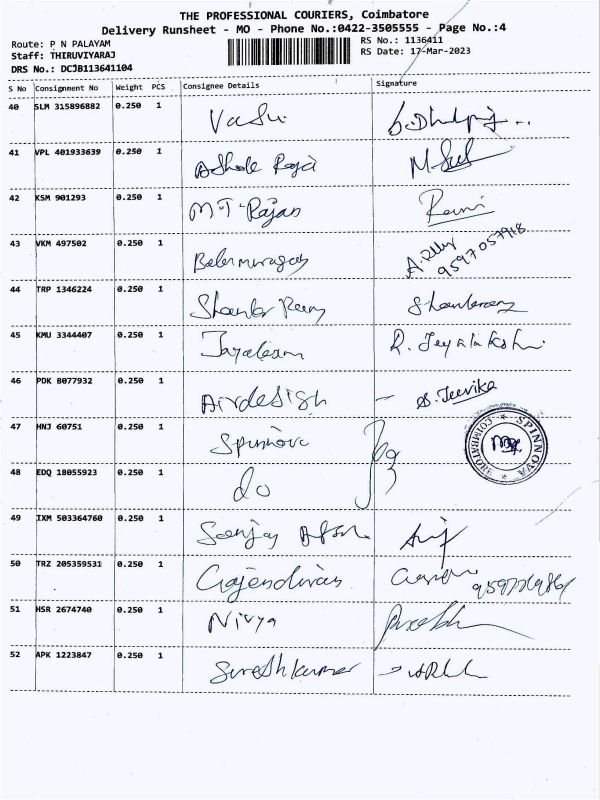 THE PROFESSIONAL COURIERS, Coimbatore
Delivery Runsheet - MO - Phone No.:0422-3505555 - Page No.:4
Route: P N PALAYAM RS No.: 1136411
Staff: THIRUVIYARAJ RS Date: 17-Mar-2023
DRS No.: DCJB113641104
S No Consignment No Weight PCS Consignee Details Signature
40 SLM 315896882 0.250 1 Vasu
41 VPL 401933639 0.250 1 Ashok Raja
42 KSM 901293 0.250 1 M.T. Rajan
43 VKM 497502 0.250 1 Balamurugan 9597057918
44 TRP 1346224 0.250 1 Shankar Ram
45 KMU 3344407 0.250 1 R. Jeyalakshmi
46 PDK 8077932 0.250 1 Airdesigh - S. Jeevika
47 HNJ 60751 0.250 1 Spinnova
SPINNOVA * COIMBATORE *
48 EDQ 18055923 0.250 1 do
49 IXM 503364760 0.250 1 Sanjay
50 TRZ 205359531 0.250 1 Gajendiran
51 HSR 2674740 0.250 1 Nivya
52 APK 1223847 0.250 1 Sureshkumar